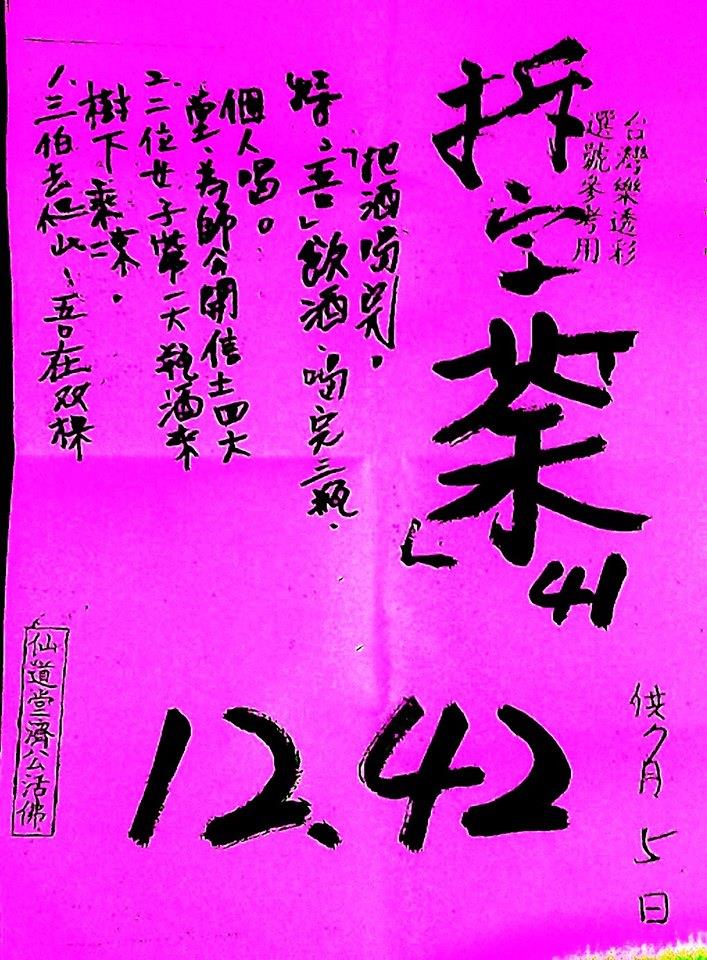 台灣樂透彩
選號參考用
拆字
41
12.42
1.三伯去他此,吾在双棵
樹下乘凉。
2.二位女子帶一大瓶酒來
堂、為師公開信士四大
個人喝。
「吾」飲酒、喝完三瓶、
把酒喝完。
月5日
仙道堂濟公活佛